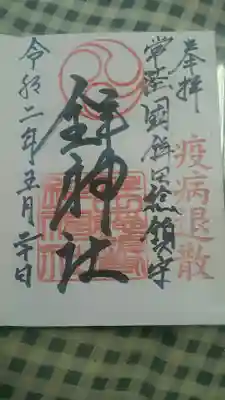 奉拝
疫病退散
常陸國鉾田惣鎮守
鉾神社
令和二年五月二十日